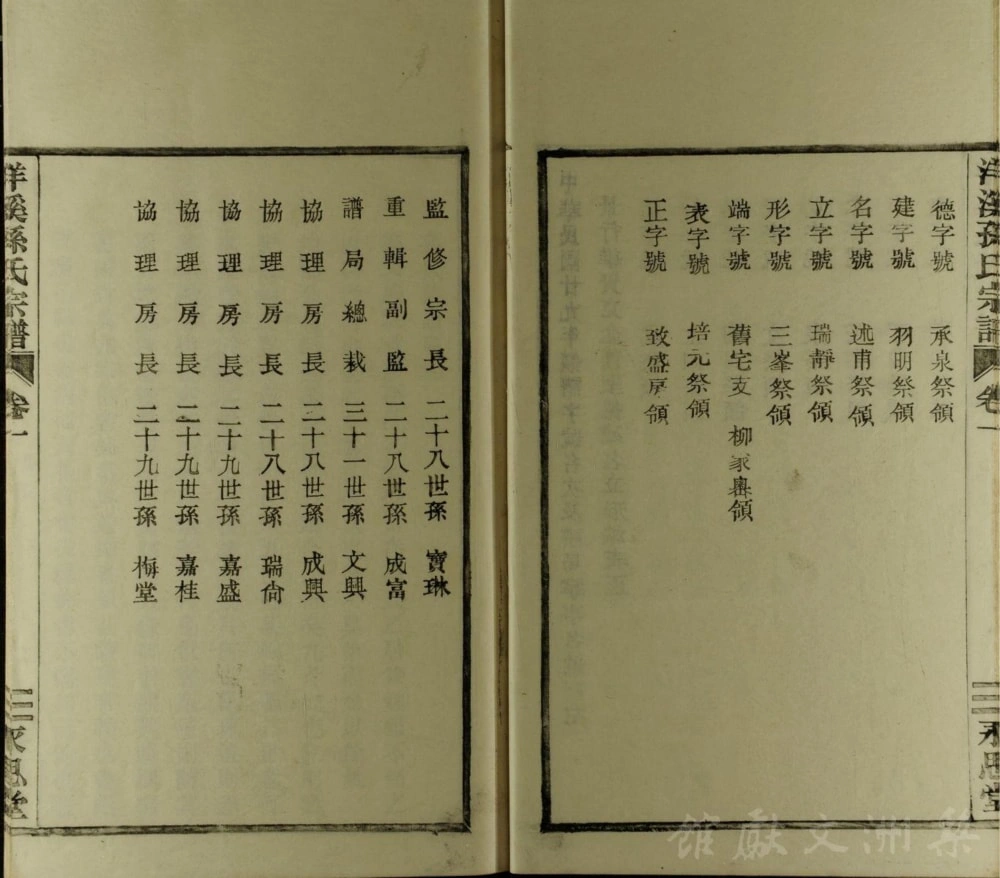 洋溪孫氏宗譜
卷一
二
永思堂
德字號 承泉祭領
建字號 羽明祭領
名字號 述甫祭領
立字號 瑞靜祭領
形字號 三峯祭領
端字號 舊宅支 柳家嶴領
表字號 培元祭領
正字號 致盛房領
監修宗長 二十八世孫 寶琳
重輯副監 二十八世孫 成富
譜局總裁 三十一世孫 文興
協理房長 二十八世孫 成興
協理房長 二十八世孫 瑞尙
協理房長 二十九世孫 嘉盛
協理房長 二十九世孫 嘉桂
協理房長 二十九世孫 梅堂
洋溪孫氏宗譜
卷一
永思堂
梁洲文獻館